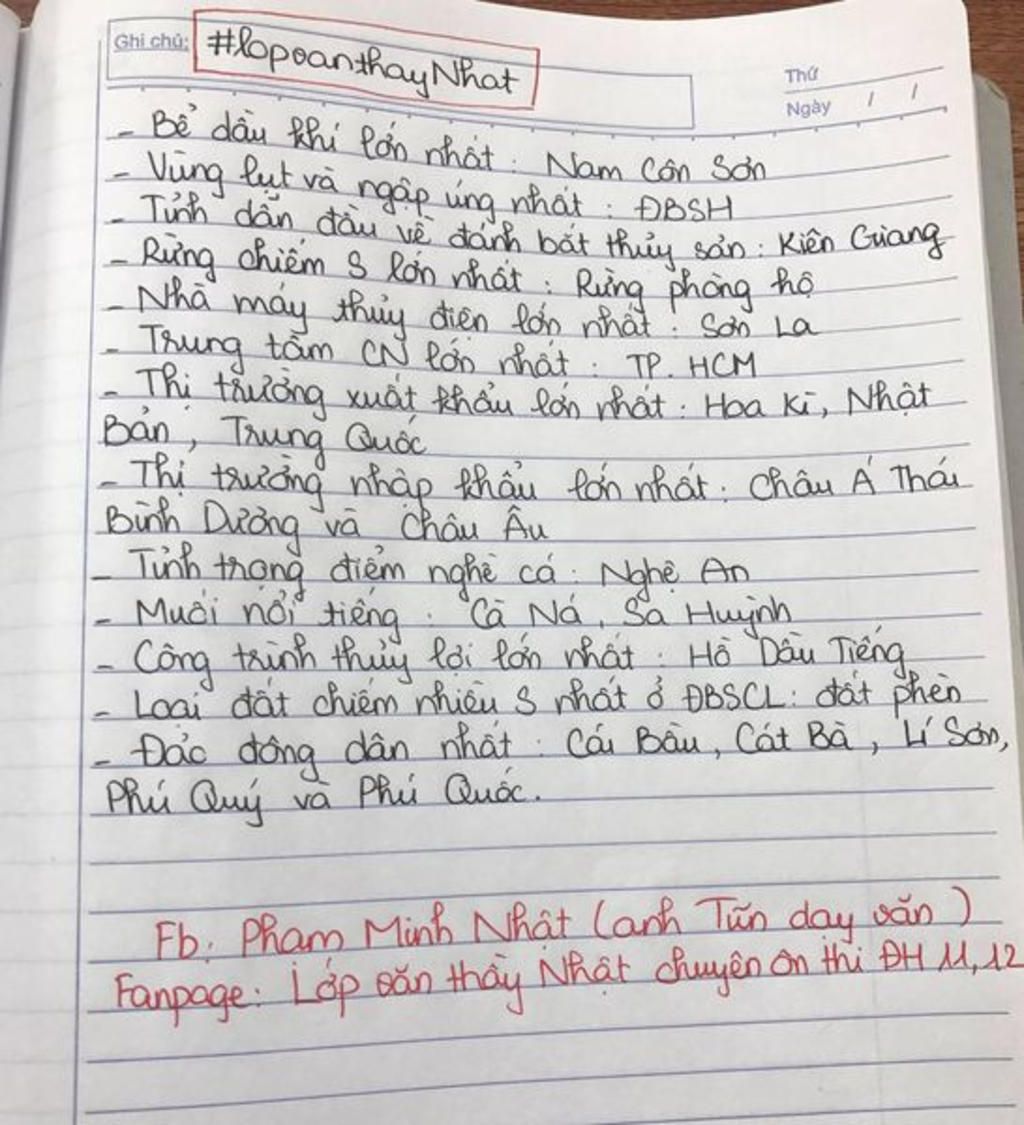 Ghi chú: #lopvanthayNhat
Thứ
Ngày / /
- Bể dầu khí lớn nhất: Nam Côn Sơn
- Vùng lụt và ngập úng nhất: ĐBSH
- Tỉnh dẫn đầu về đánh bắt thủy sản: Kiên Giang
- Rừng chiếm S lớn nhất: Rừng phòng hộ
- Nhà máy thủy điện lớn nhất: Sơn La
- Trung tâm CN lớn nhất: TP. HCM
- Thị trường xuất khẩu lớn nhất: Hoa Kì, Nhật
Bản, Trung Quốc
- Thị trường nhập khẩu lớn nhất: Châu Á Thái
Bình Dương và Châu Âu
- Tỉnh trọng điểm nghề cá: Nghệ An
- Muối nổi tiếng: Cà Ná, Sa Huỳnh
- Công trình thủy lợi lớn nhất: Hồ Dầu Tiếng
- Loại đất chiếm nhiều S nhất ở ĐBSCL: đất phèn
- Đảo đông dân nhất: Cái Bầu, Cát Bà, Lí Sơn,
Phú Quý và Phú Quốc.
Fb: Phạm Minh Nhật (anh Tũn dạy văn)
Fanpage: Lớp văn thầy Nhật chuyên ôn thi ĐH 11, 12